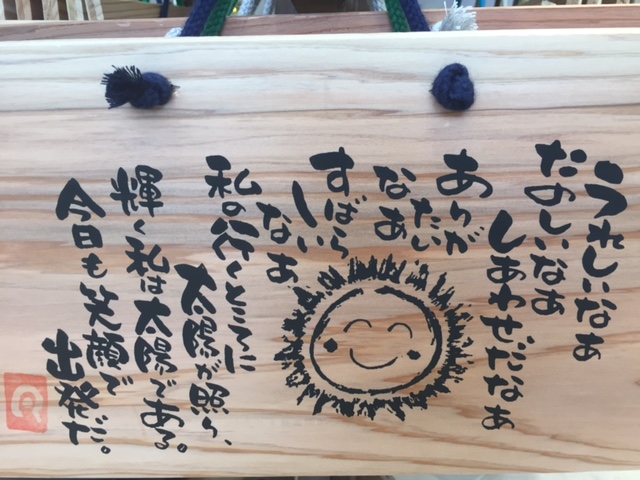 うれしいなぁ
たのしいなぁ
しあわせだなぁ
ありが
たい
なあ
すばら
しい
なぁ
私の行くところに
太陽が照り、
輝く私は太陽である。
今日も笑顔で
出発だ。